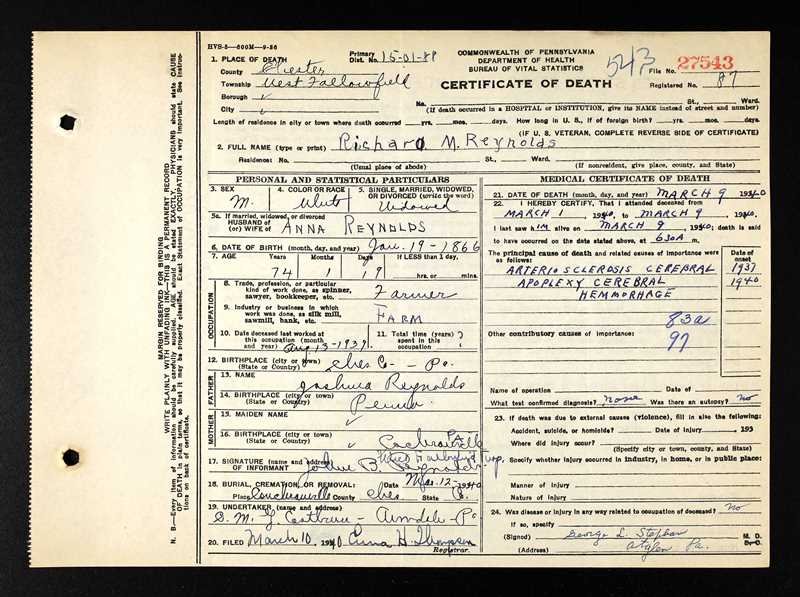 HVS-5-600M-9-36
COMMONWEALTH OF PENNSYLVANIA
DEPARTMENT OF HEALTH
BUREAU OF VITAL STATISTICS
CERTIFICATE OF DEATH
Primary Dist. No. 15-01-88
543
File No. 27543
Registered No. 87
1. PLACE OF DEATH
County Chester
Township West Fallowfield
Borough ✓
City ✓
No. St., Ward.
(If death occurred in a HOSPITAL or INSTITUTION, give its NAME instead of street and number)
Length of residence in city or town where death occurred yrs. mos. days. How long in U. S., if of foreign birth? yrs. mos. days.
(IF U. S. VETERAN, COMPLETE REVERSE SIDE OF CERTIFICATE)
2. FULL NAME (type or print) Richard M. Reynolds
Residence: No. St., Ward.
(Usual place of abode) (If nonresident, give place, county, and State)
PERSONAL AND STATISTICAL PARTICULARS
3. SEX M.
4. COLOR OR RACE White
5. SINGLE, MARRIED, WIDOWED, OR DIVORCED (write the word) Widowed
5a. If married, widowed, or divorced
HUSBAND of
(or) WIFE of ANNA REYNOLDS
6. DATE OF BIRTH (month, day, and year) Jan. 19-1866
7. AGE Years Months Days If LESS than 1 day,
74 1 19 hrs. or mins.
OCCUPATION
8. Trade, profession, or particular kind of work done, as spinner, sawyer, bookkeeper, etc. Farmer
9. Industry or business in which work was done, as silk mill, sawmill, bank, etc. FARM
10. Date deceased last worked at this occupation (month and year) Aug 13-1939
11. Total time (years) spent in this occupation ?
12. BIRTHPLACE (city or town) (State or Country) Ches Co - Pa.
FATHER
13. NAME Joshua Reynolds
14. BIRTHPLACE (city or town) (State or Country) Penna
MOTHER
15. MAIDEN NAME ✓
16. BIRTHPLACE (city or town) (State or Country) ✓
Cochranville PA
17. SIGNATURE (name and address) OF INFORMANT B. Reynolds
18. BURIAL, CREMATION, OR REMOVAL: Date Mar. 12-1940
Place County Ches State Pa.
19. UNDERTAKER (name and address)
20. FILED March 10, 1940 Anna H. Thompson
Registrar.
MEDICAL CERTIFICATE OF DEATH
21. DATE OF DEATH (month, day, and year) MARCH 9 1940
22. I HEREBY CERTIFY, That I attended deceased from
MARCH 1, 1940, to MARCH 9, 1940.
I last saw him alive on MARCH 9, 1940; death is said
to have occurred on the date stated above, at 630A m.
The principal cause of death and related causes of importance were as follows:
Date of onset
ARTERIOSCLEROSIS CEREBRAL 1937
APOPLEXY CEREBRAL 1940
HEMMORHAGE
83a
97
Other contributory causes of importance:
Name of operation Date of
What test confirmed diagnosis? none Was there an autopsy? No
23. If death was due to external causes (violence), fill in also the following:
Accident, suicide, or homicide? Date of injury , 193
Where did injury occur?
(Specify city or town, county, and State)
Specify whether injury occurred in industry, in home, or in public place:
Manner of injury
Nature of injury
24. Was disease or injury in any way related to occupation of deceased? no
If so, specify
(Signed) George L. Stephan M. D.
(Address) Atglen Pa.
MARGIN RESERVED FOR BINDING
WRITE PLAINLY WITH UNFADING INK—THIS IS A PERMANENT RECORD
N. B.—Every item of information should be carefully supplied. AGE should be stated EXACTLY. PHYSICIANS should state CAUSE OF DEATH in plain terms, so that it may be properly classified. Exact Statement of OCCUPATION is very important. See instructions on back of certificate.